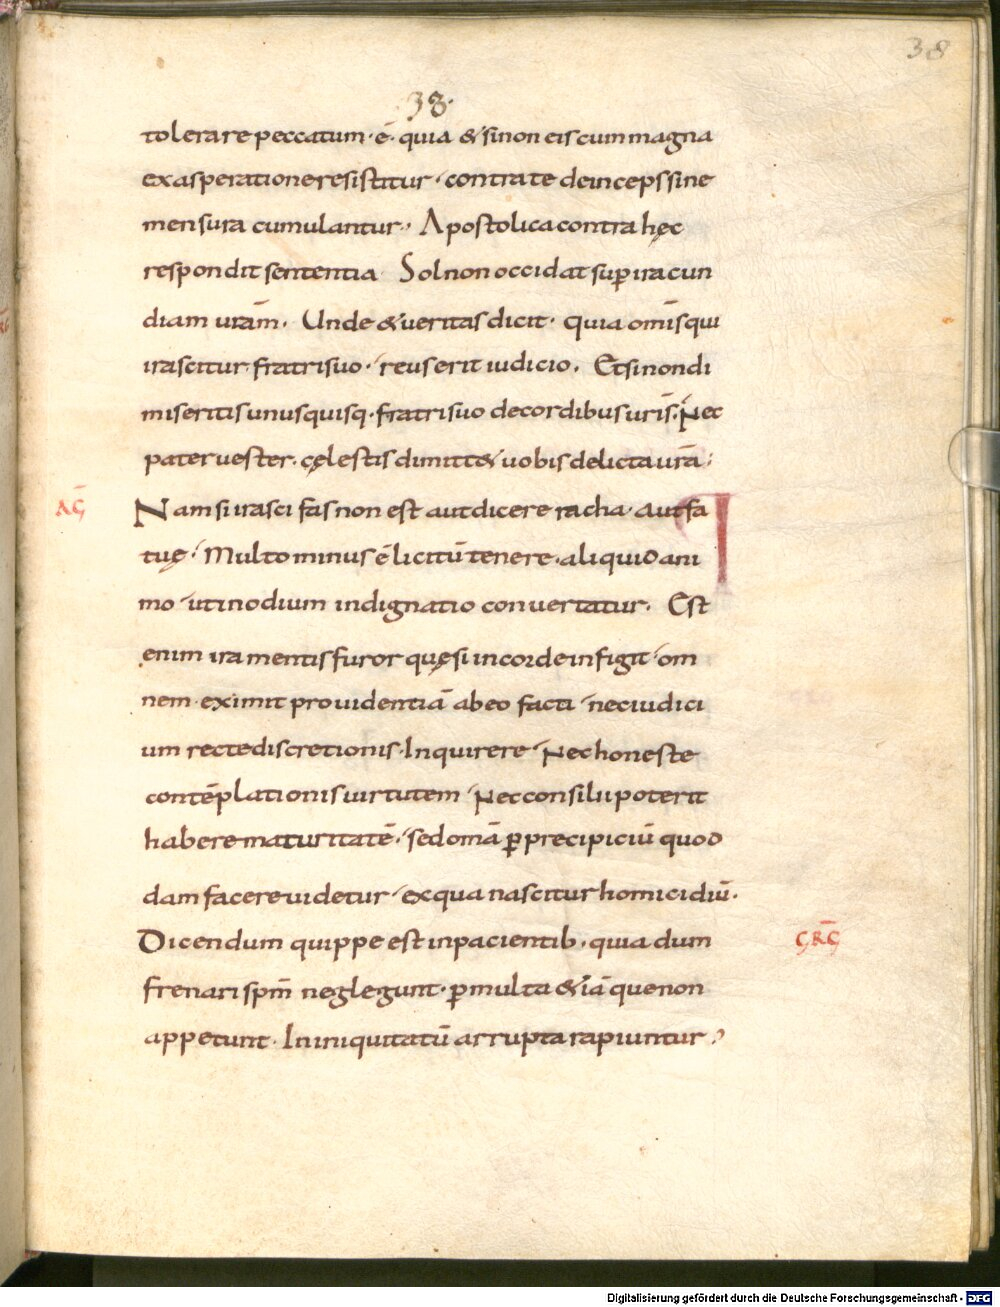 38
38.
tolerare peccatum · ē · quia & sinon eis cum magna
exasperatione resistitur · contra te deinceps sine
mensura cumulantur · Apostolica contra hęc
respondit sententia Sol non occidat sup iracun
diam uram̄ . Unde & ueritas dicit · quia om̄is qui
irascitur fratri suo · reus erit iudicio . Et si non di
miseritis unusquisq · fratri suo de cordibus uris̄ . Nec
pater uester · cęlestis dimitt& uobis delicta urā ;
AḠ
Nam si irasci fas non est aut dicere racha · aut fa
tuę · Multo minus ē licitū tenere · aliquid ani
mo · ut in odium indignatio conuertatur . Est
enim ira mentis furor quę si in corde infigit · om
nem · eximit prouidentiā ab eo facti · nec iudici
um recte discretionis · Inquirere · Nec honeste
contēplationis uirtutem · Nec consilii poterit
habere maturitatē · sed omā ꝑ precipiciū quod
dam facere uidetur · ex qua nascitur homicidiū .
Dicendum quippe est inpacientib · quia dum
GRḠ
frenari spm̄ neglegunt · ꝑ multa & iā que non
appetunt · In iniquitatū arrupta rapiuntur ;
Digitalisierung gefördert durch die Deutsche Forschungsgemeinschaft - DFG